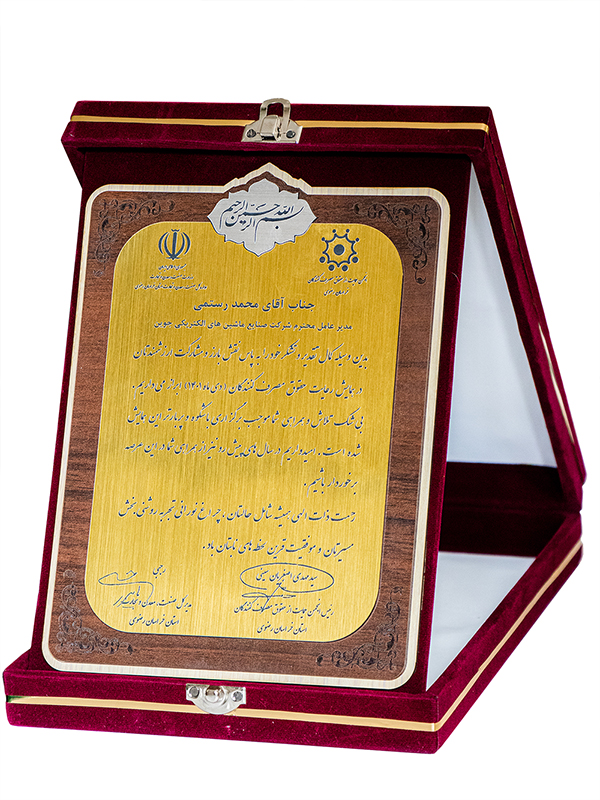 بسم الله الرحمن الرحیم
انجمن حمایت از حقوق مصرف کنندگان
خراسان رضوی
جناب آقای محمد رستمی
مدیر عامل محترم شرکت صنایع ماشین های الکتریکی جوین
بدین وسیله کمال تقدیر و تشکر خود را به پاس نقش بارز و مشارکت ارزشمندتان
در همایش رعایت حقوق مصرف کنندگان (دی ماه ۱۴۰۱) ابراز می داریم .
بی شک تلاش و همراهی شما موجب برگزاری باشکوه و پربارتر این همایش
شده است . امیدواریم در سال های پیش رو نیز از همراهی شما در این عرصه
برخوردار باشیم .
رحمت ذات الهی همیشه شامل حالتان ، چراغ نورانی تجربه روشنی بخش
مسیرتان و موفقیت قرین لحظه های نابتان باد .
سید مهدی اصغریان
رئیس انجمن حمایت از حقوق مصرف کنندگان
استان خراسان رضوی
رجبی
مدیر کل صنعت، معدن و تجارت
استان خراسان رضوی